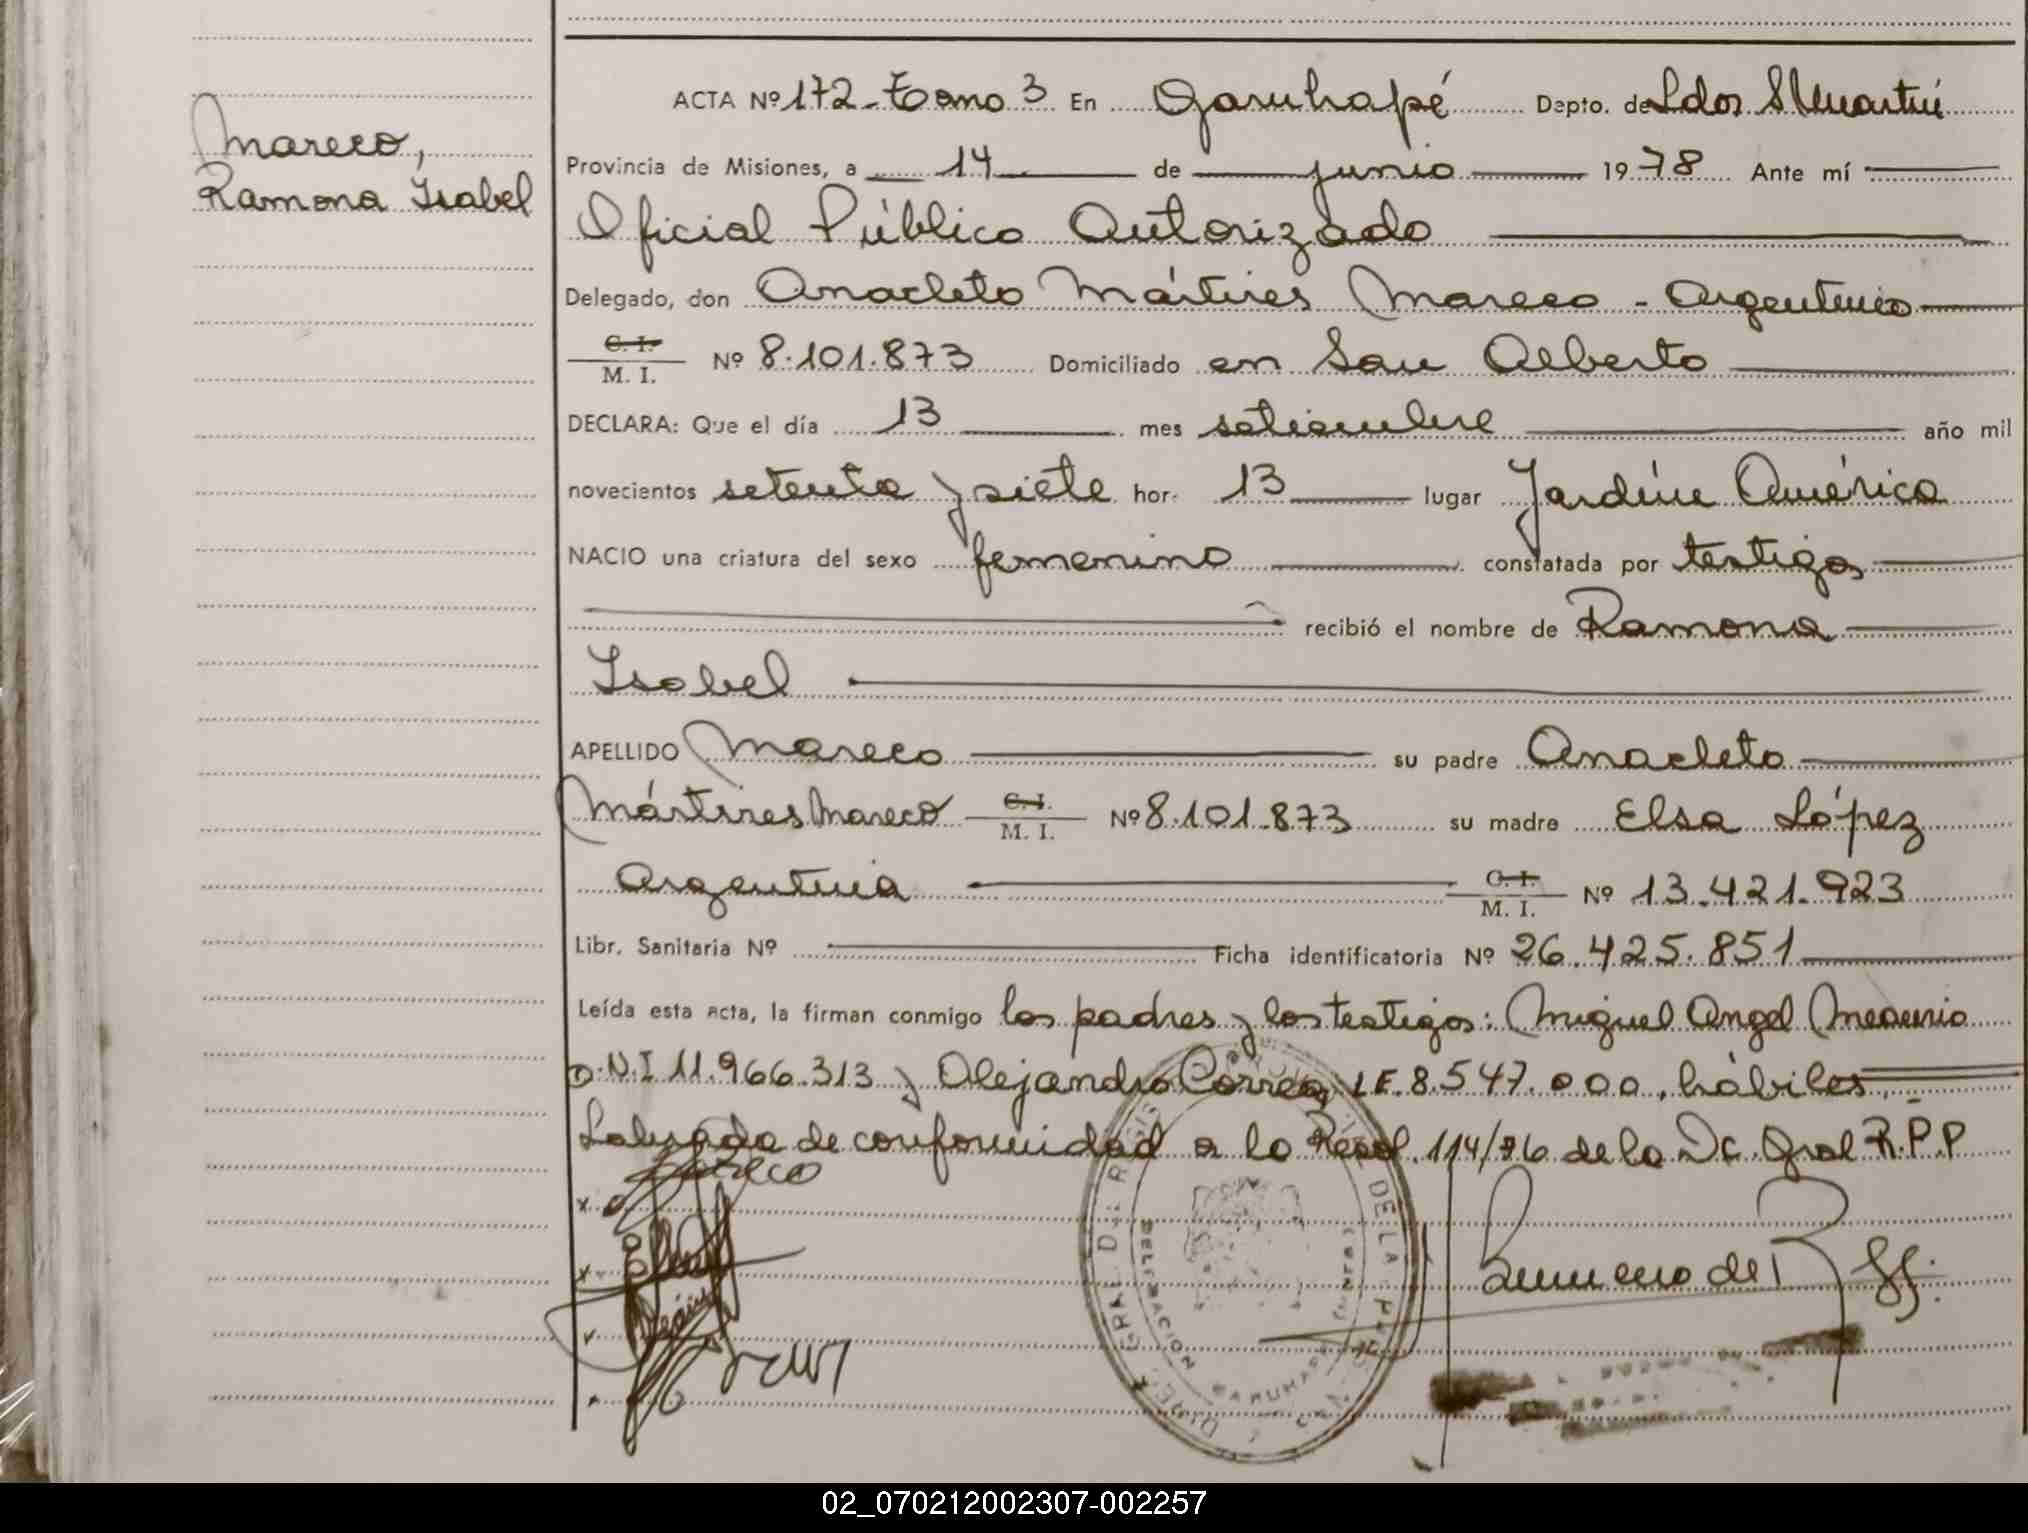 Mareco,
Ramona Isabel
ACTA Nº 172 - Tomo 3 En Garuhapé Depto. de Ldor S Martín
Provincia de Misiones, a 14 de junio 1978 Ante mí
Oficial Público Autorizado
Delegado, don Anacleto Mártires Mareco - Argentino
C. I. / M. I. Nº 8.101.873 Domiciliado en San Alberto
DECLARA: Que el día 13 mes setiembre año mil
novecientos setenta y siete hor. 13 lugar Jardín América
NACIO una criatura del sexo femenino constatada por testigos
recibió el nombre de Ramona
Isabel
APELLIDO Mareco su padre Anacleto
Mártires Mareco C. I. / M. I. Nº 8.101.873 su madre Elsa López
Argentina C. I. / M. I. Nº 13.421.923
Libr. Sanitaria Nº Ficha identificatoria Nº 26.425.851
Leída esta acta, la firman conmigo los padres y los testigos: Miguel Angel
D.N.I 11.966.313 y Alejandro Correa, L.E. 8.547.000, hábiles.
Labrada de conformidad a la Resol. 114/76 de la Dc. Gral R.P.P
Mareco
DELEGACION GARUHAPE (MNES)
02_070212002307-002257